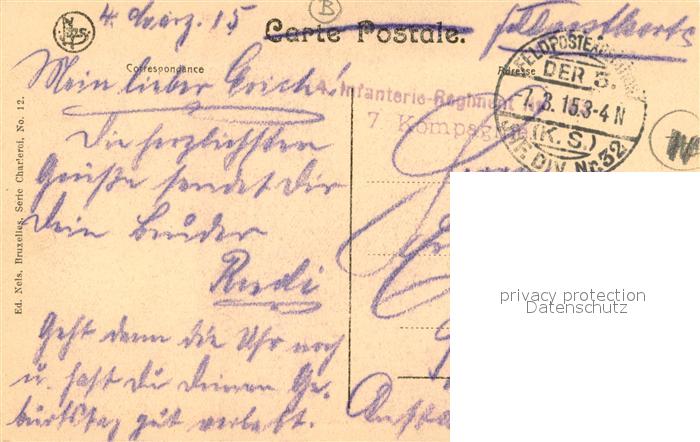 4. März. 15
Carte Postale.
Feldpostkarte
Correspondance
Adresse
Mein lieber Erich!
Die herzlichsten
Grüße sendet dir
Dein Bruder
Rudi
Geht denn die Uhr noch
u. hast du deinen Ge-
burtstag gut verlebt.
Infanterie-Regiment
7 Kompagnie
DER 3.
7.3.15.3-4N
(K.S.)
INF. DIV. Nr. 32
B
Ed. Nels, Bruxelles, Serie Charleroi, No. 12.
privacy protection
Datenschutz